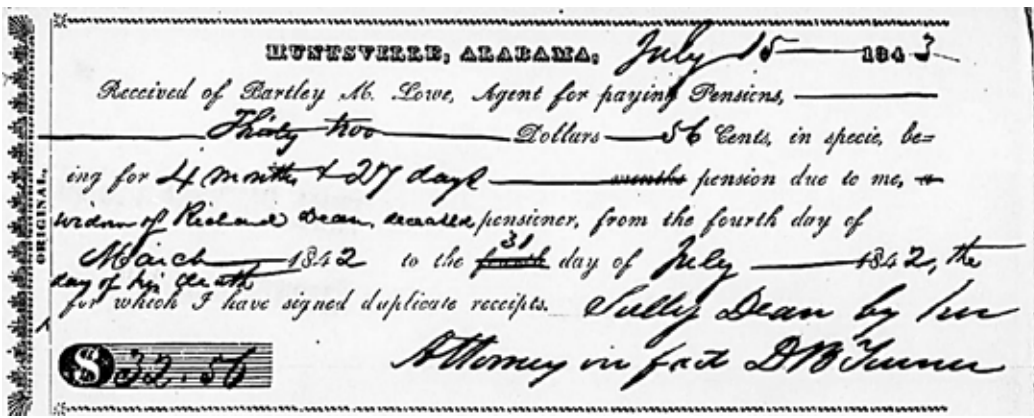 HUNTSVILLE, ALABAMA, July 15 1843
Received of Bartley M. Lowe, Agent for paying Pensions,
Thirty two Dollars 56 Cents, in specie, be=
ing for 4 months & 27 days months pension due to me, a
widow of Richard Dean deceased pensioner, from the fourth day of
March 1842 to the fourth 31 day of July 1842, the
day of his death
for which I have signed duplicate receipts. Sally Dean by her
$32.56 Attorney in fact D B Turner
ORIGINAL.